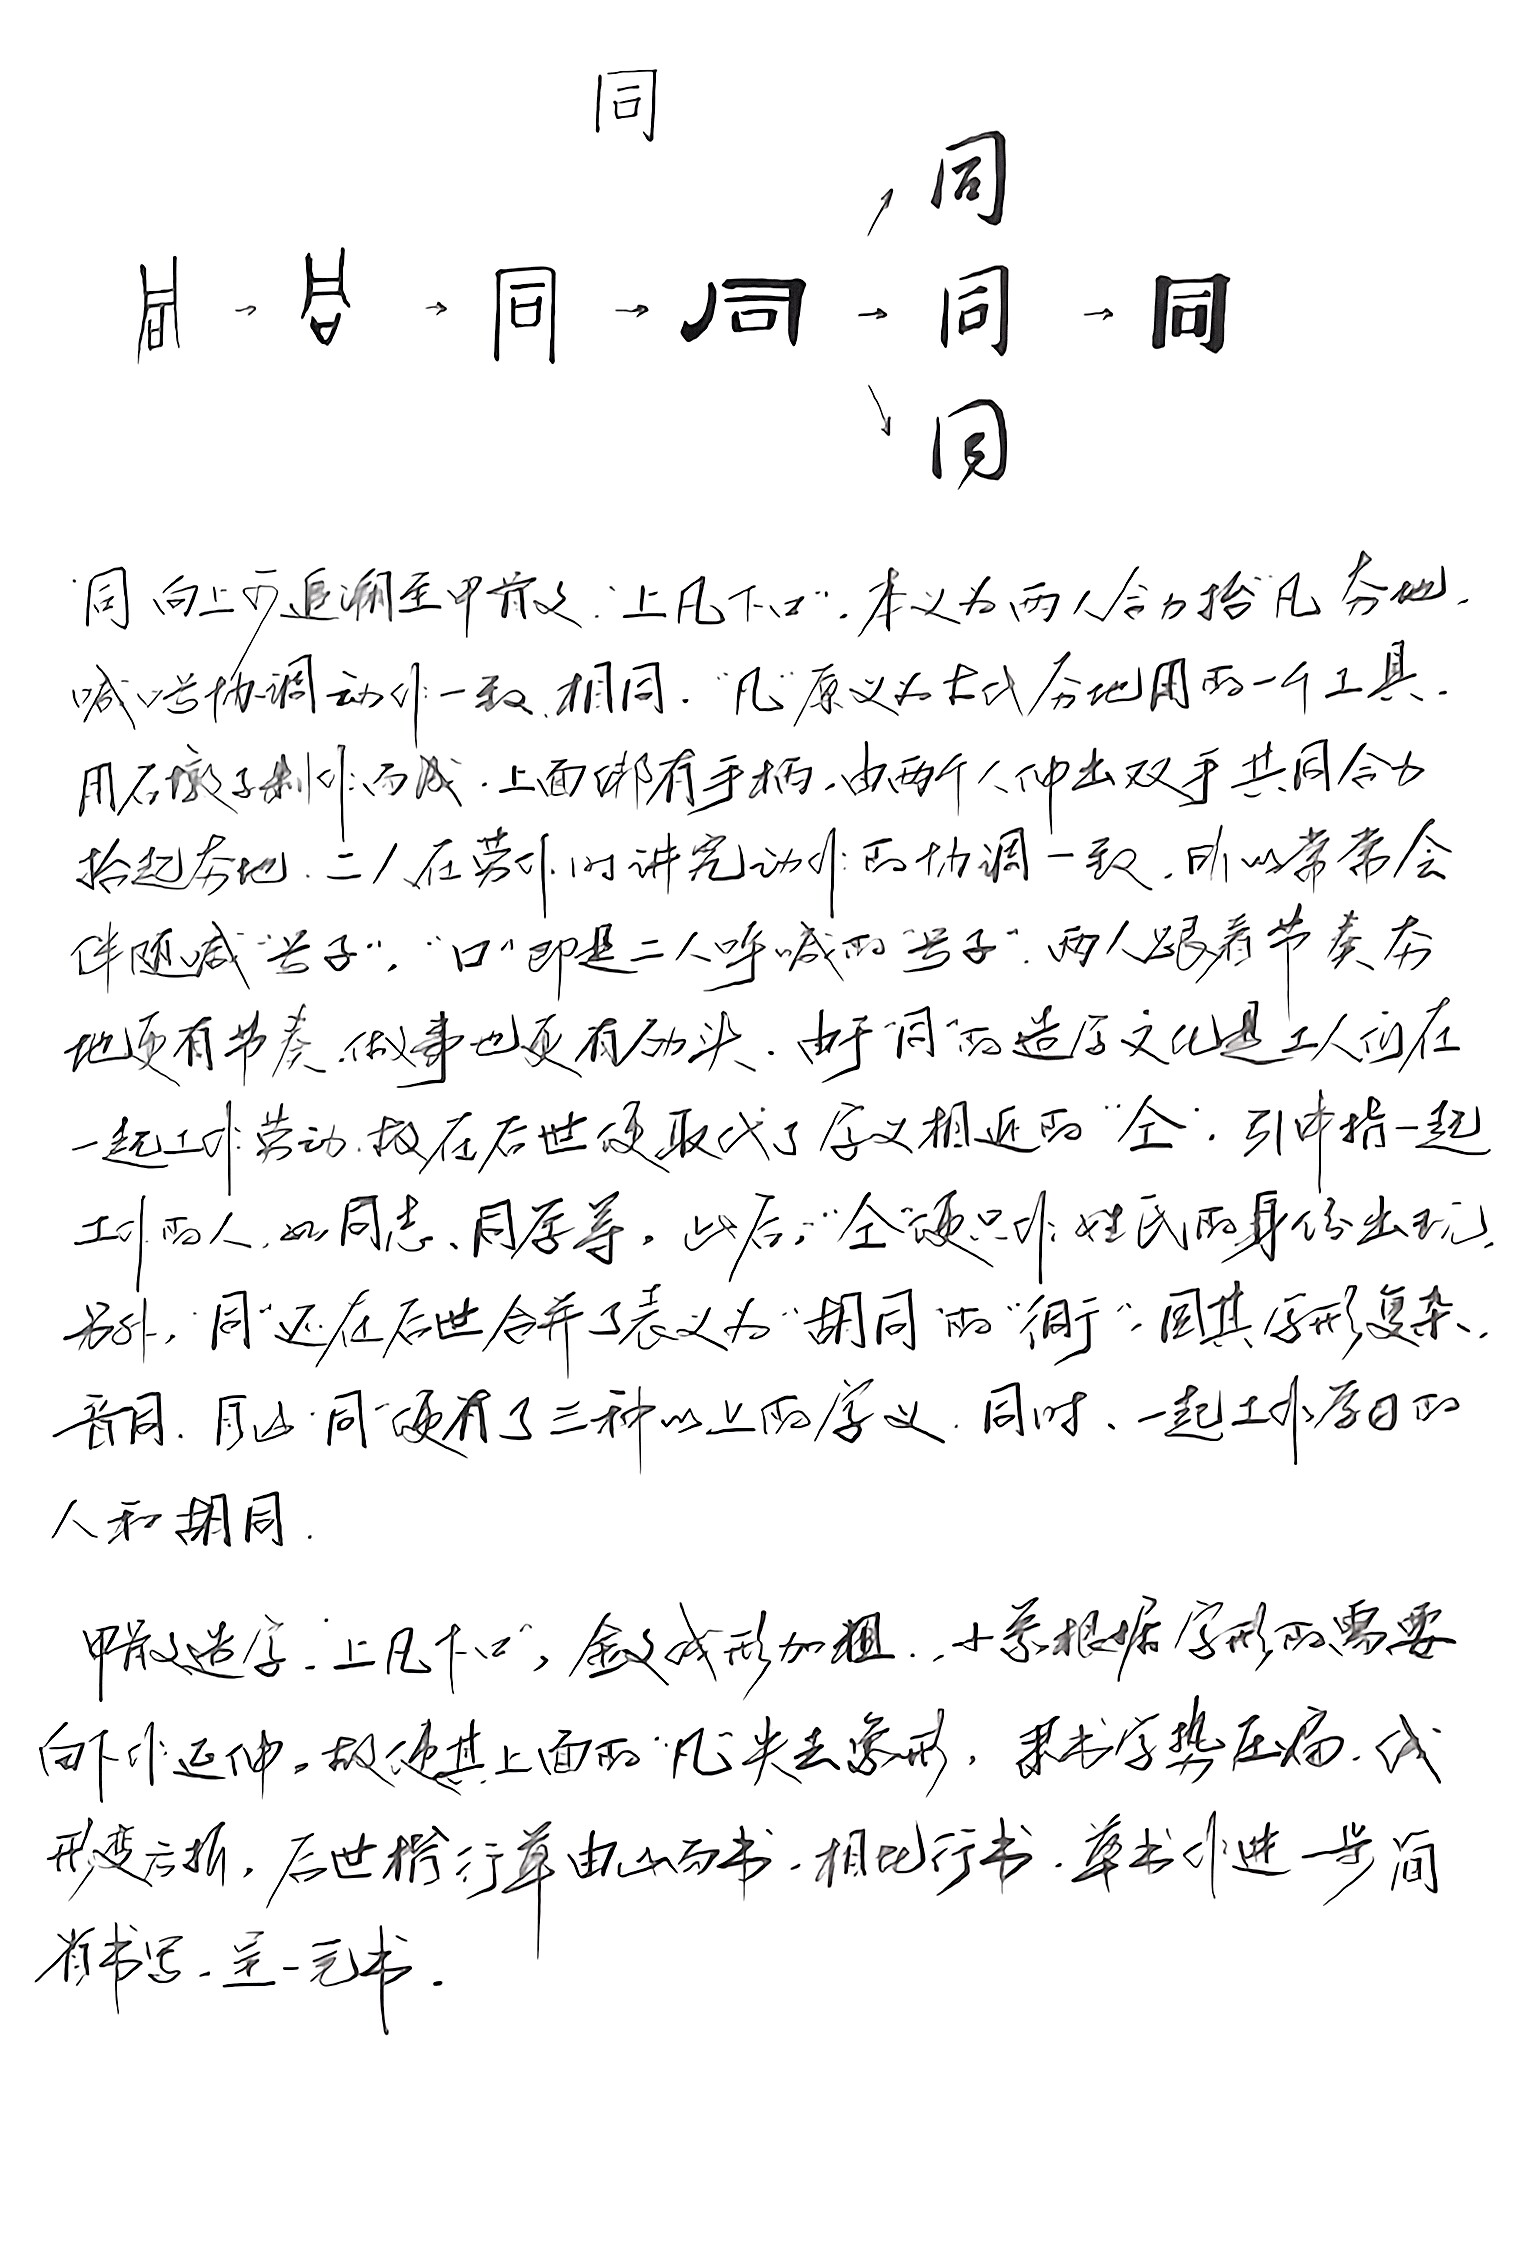 同
同
同 → 同 → 同 → 同 → 同 → 同
同
"同"向上可追溯至甲骨文."上凡下口".本义为两人合力抬"凡"夯地.
喊口号协调动作一致、相同."凡"原义为古代夯地用的一个工具.
用石墩子制作而成.上面绑有手柄.由两个人伸出双手共同合力
抬起夯地.二人在劳作时讲究动作的协调一致.所以常常会
伴随喊"号子"."口"即是二人呼喊的"号子".两人跟着节奏夯
地更有节奏.做事也更有劲头.由于"同"的造字文化是工人们在
一起工作劳动.故在后世便取代了字义相近的"仝".引申指一起
工作的人.如同志、同学等。此后,"仝"便只作姓氏的身份出现.
另外,"同"还在后世合并了表义为"胡同"的"衕",因其字形复杂、
音同.自此"同"便有了三种以上的字义.同时、一起工作学习的
人和胡同.
甲骨文造字."上凡下口",金文线形加粗.,小篆根据字形的需要
向下作延伸。故使其上面的"凡"失去象形,隶书字势压扁.线
形变方折,后世楷行草由此而书.相比行书.草书作进一步简
省书写.呈一元书.